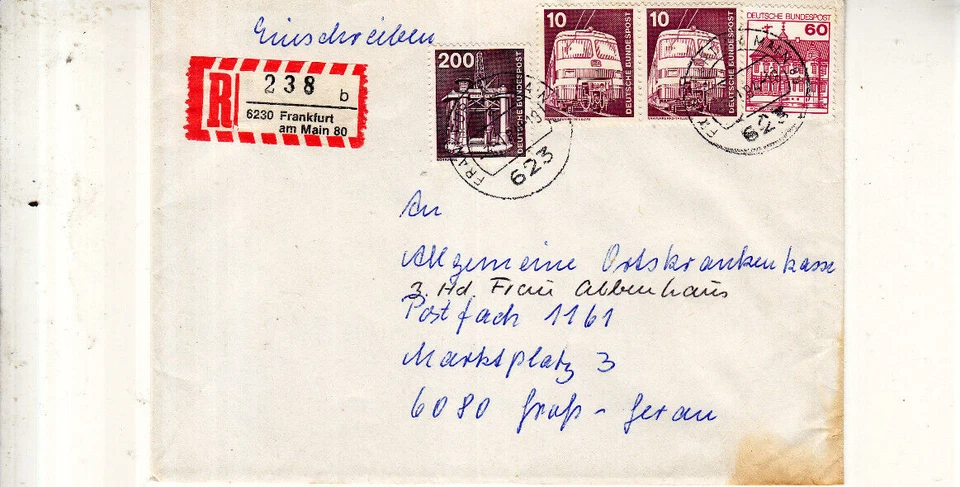 Einschreiben
R
238
b
6230 Frankfurt
am Main 80
200
DEUTSCHE BUNDESPOST
10
DEUTSCHE BUNDESPOST
10
DEUTSCHE BUNDESPOST
DEUTSCHE BUNDESPOST
60
623
623
An
Allgemeine Ortskrankenkasse
z. Hd Frau Abbenhaus
Postfach 1161
Marktplatz 3
6080 Groß-Gerau